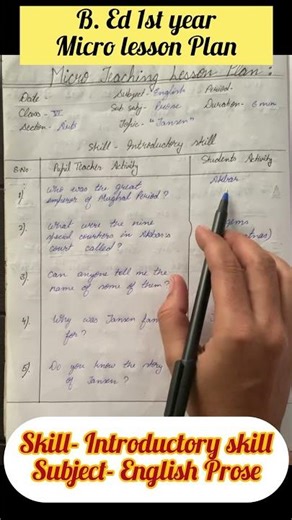 B. Ed 1st year
Micro lesson Plan
Micro Teaching Lesson Plan:
Date - Subject - English Period -
Class - VI Sub sub - Prose Duration - 6 min
Section - Topic - "Tansen"
Skill - Introductory skill
S.No Pupil Teacher Activity Students Activity
1) Who was the great Akbar
emperor of Mughal Period?
2) What were the nine
special courtiers in Akbar's
court called?
3) Can anyone tell me the
name of some of them?
4) Why was Tansen
for?
5). Do you know the story
of Tansen?
Skill- Introductory skill
Subject- English Prose